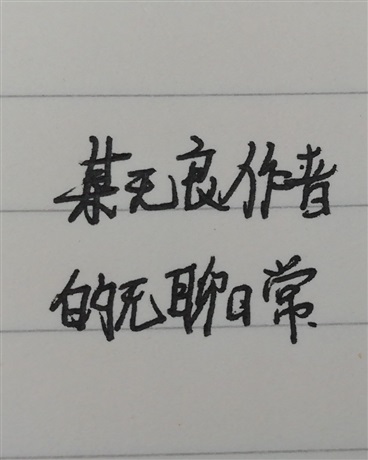 某无良作者
的无聊日常